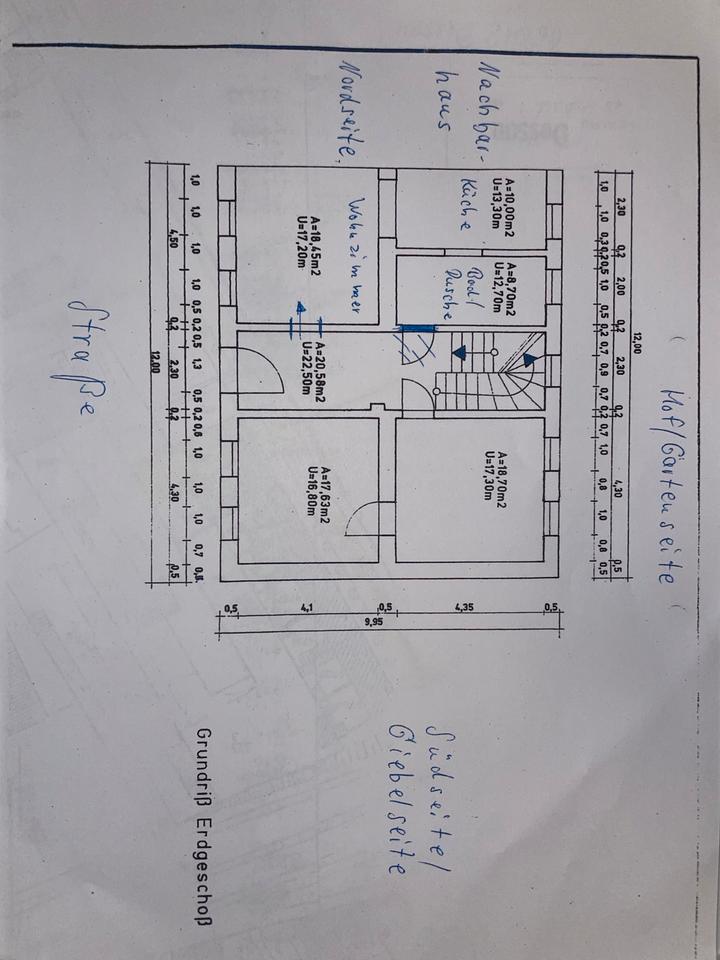 Hof/Gartenseite
12,00
2,30 0,2 2,00 0,2 2,30 0,2 4,30 0,5
1,0 1,0 0,3 0,2 0,5 1,0 0,5 0,2 0,7 0,9 0,7 0,2 0,7 1,0 0,8 1,0 0,8 0,5
Nachbar-
haus
A=10,00m2
U=13,30m
Küche
A=8,70m2
U=12,70m
Bad/
Dusche
A=18,70m2
U=17,30m
0,5
4,35
0,5
4,1
0,5
9,95
Südseite/
Giebelseite
Nordseite
Wohnzimmer
A=18,45m2
U=17,20m
A=20,58m2
U=22,50m
A=17,63m2
U=16,80m
1,0 1,0 1,0 1,0 0,5 0,2 0,5 1,3 0,5 0,2 0,8 1,0 1,0 1,0 0,7 0,8
4,50 0,2 2,30 0,2 4,30 0,5
12,00
Straße
Grundriß Erdgeschoß